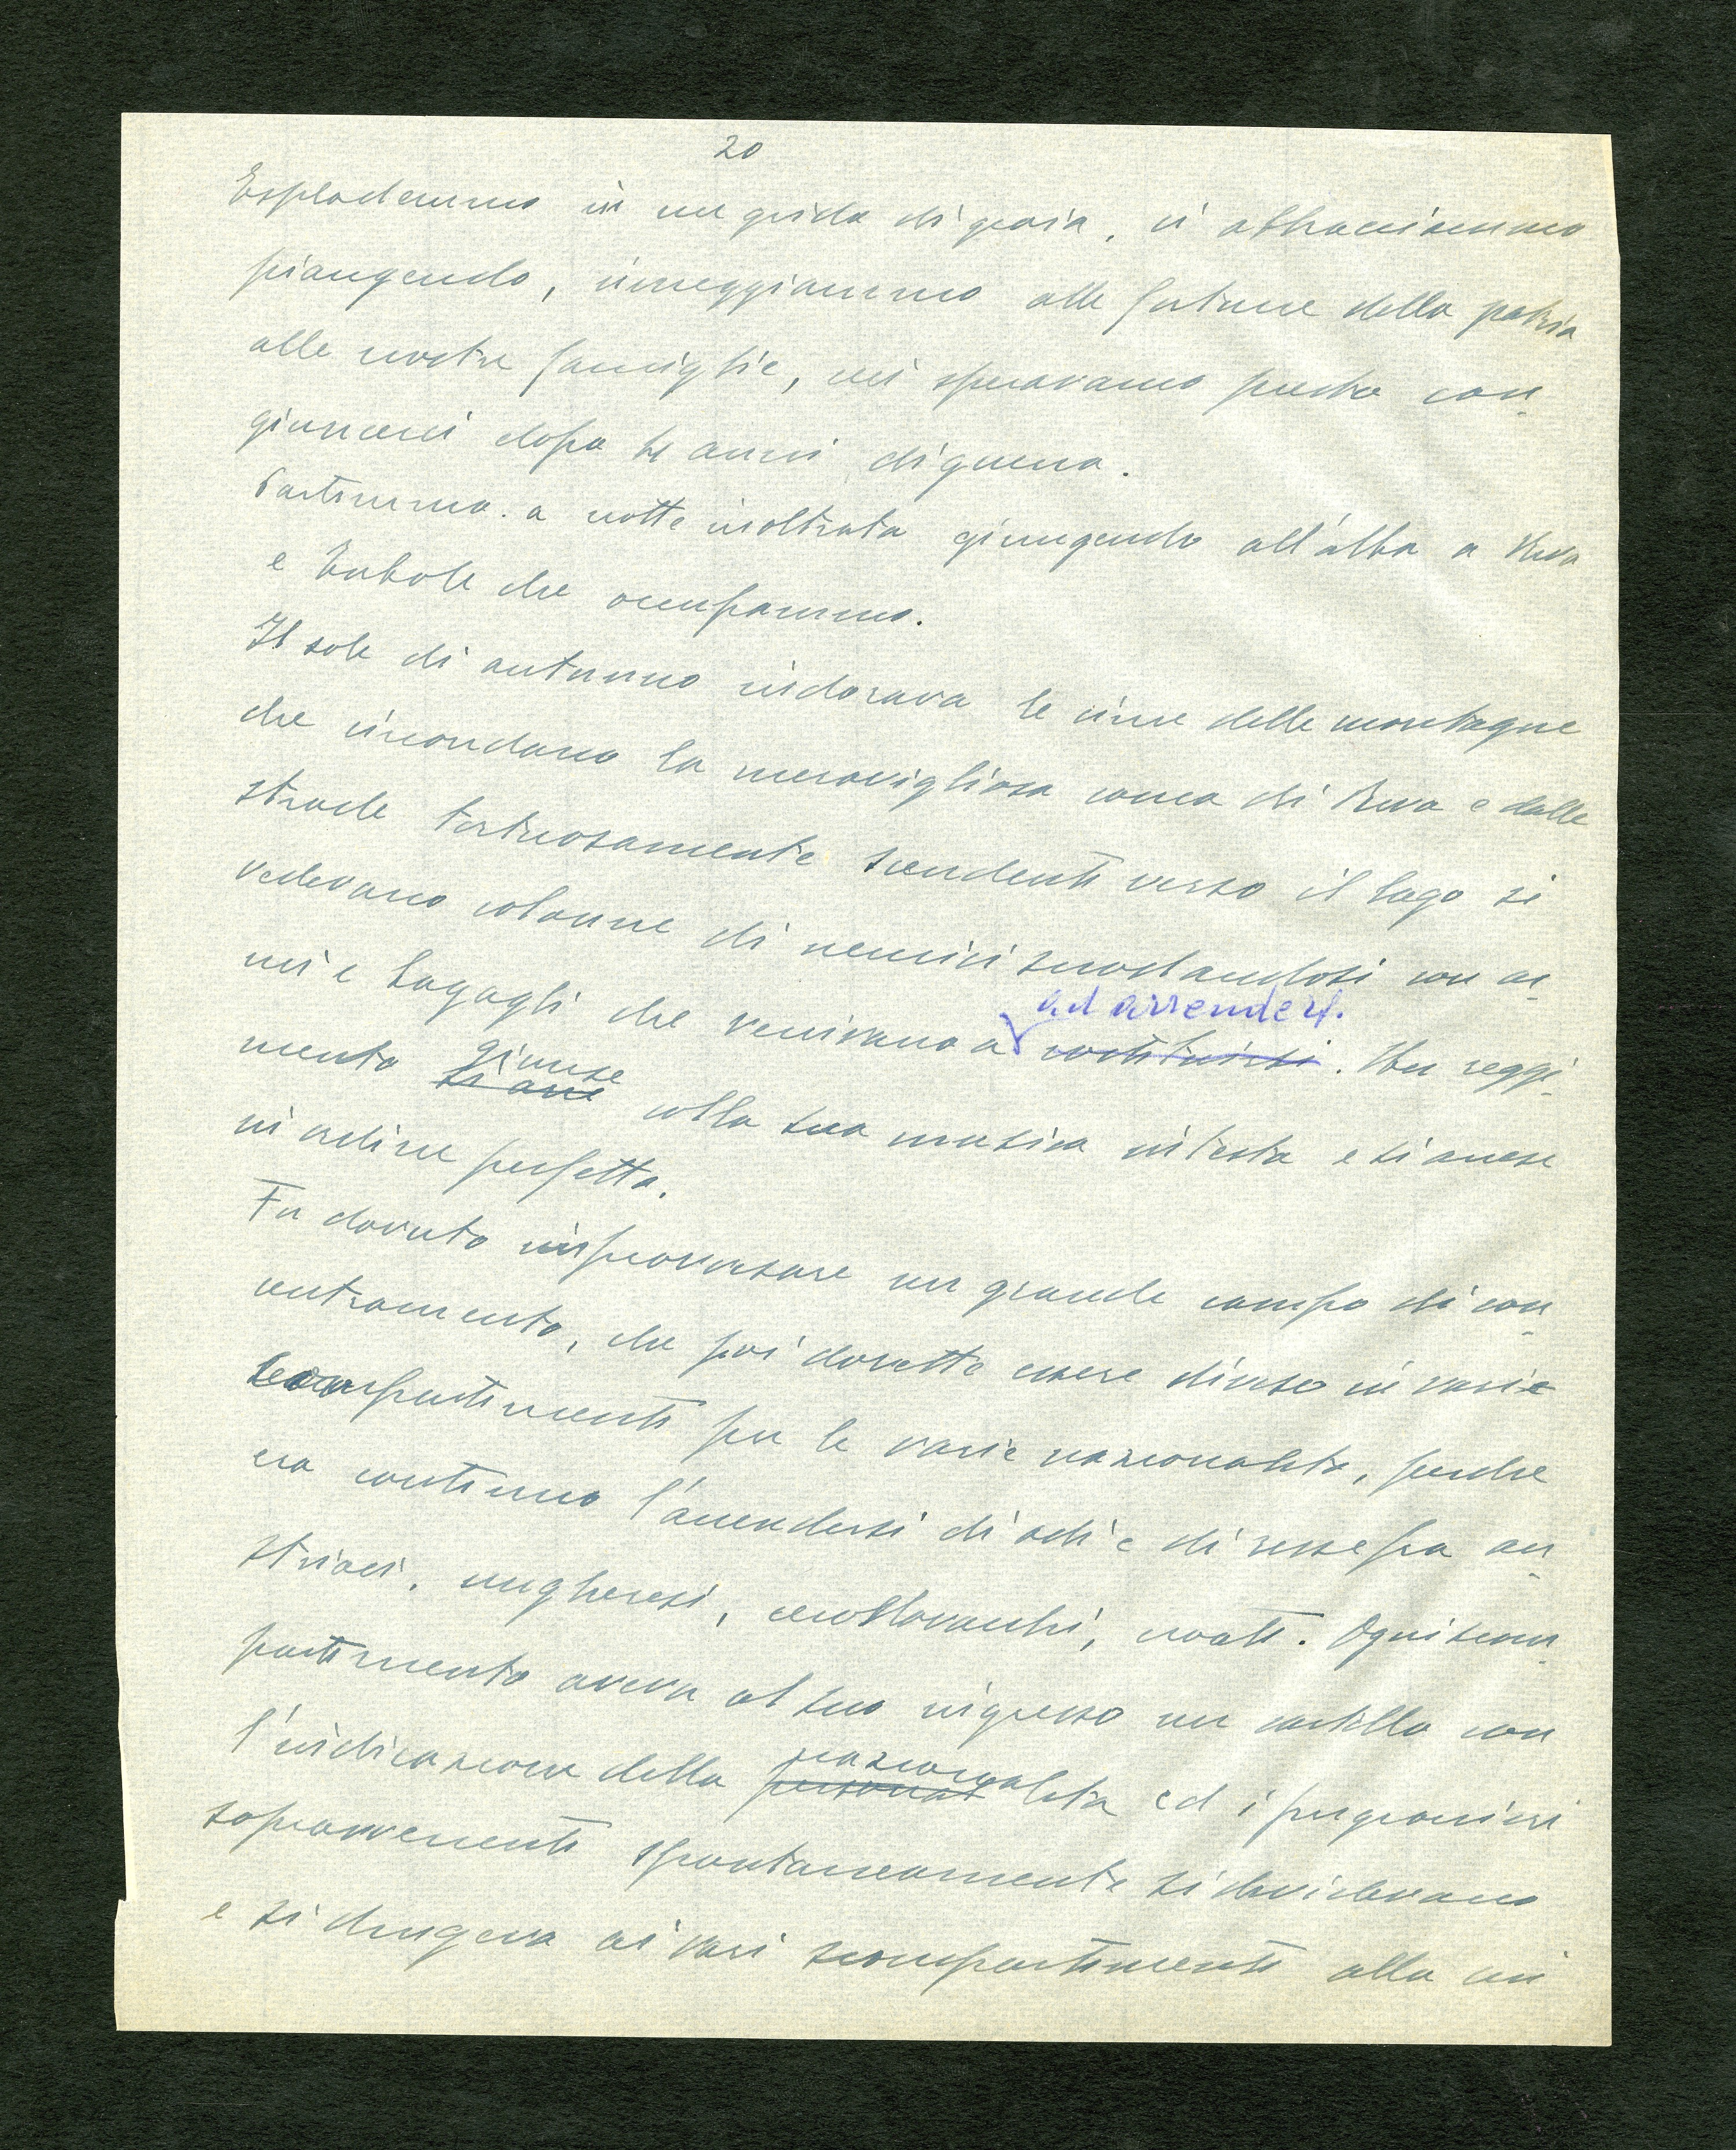 20
Esplodemmo in un grido di gioia, ci abbracciammo
piangendo, inneggiammo alle fortune della patria
alle nostre famiglie, cui speravamo presto con-
giungerci dopo tre anni di guerra.
Partimmo. a notte inoltrata giungendo all'alba a Riva
e Torbole che occupammo.
Il sole di autunno indorava le cime delle montagne
che circondano la meravigliosa conca di Riva e dalle
strade tortuosamente scendenti verso il lago si
vedevano colonne di nemici snodandosi con ar-
mi e bagagli che venivano a ad arrendersi.
costituirsi. Un reggi-
mento si arre giunse colla sua musica in testa e si arrese
in ordine perfetto.
Fu dovuto improvvisare un grande campo di con-
centramento, che poi dovette essere diviso in varie
scompartimenti per le varie nazionalità, perche
era continuo l'accendersi di odi e di risse fra au-
striaci, ungheresi, cecoslovacchi, croati. Ogni scom-
partimento aveva al suo ingresso un cartello con
l'indicazione della personal nazionalità ed i prigionieri
sopravvenenti spontaneamente si dividevano
e si dirigeva ai vari scompartimenti alla cui